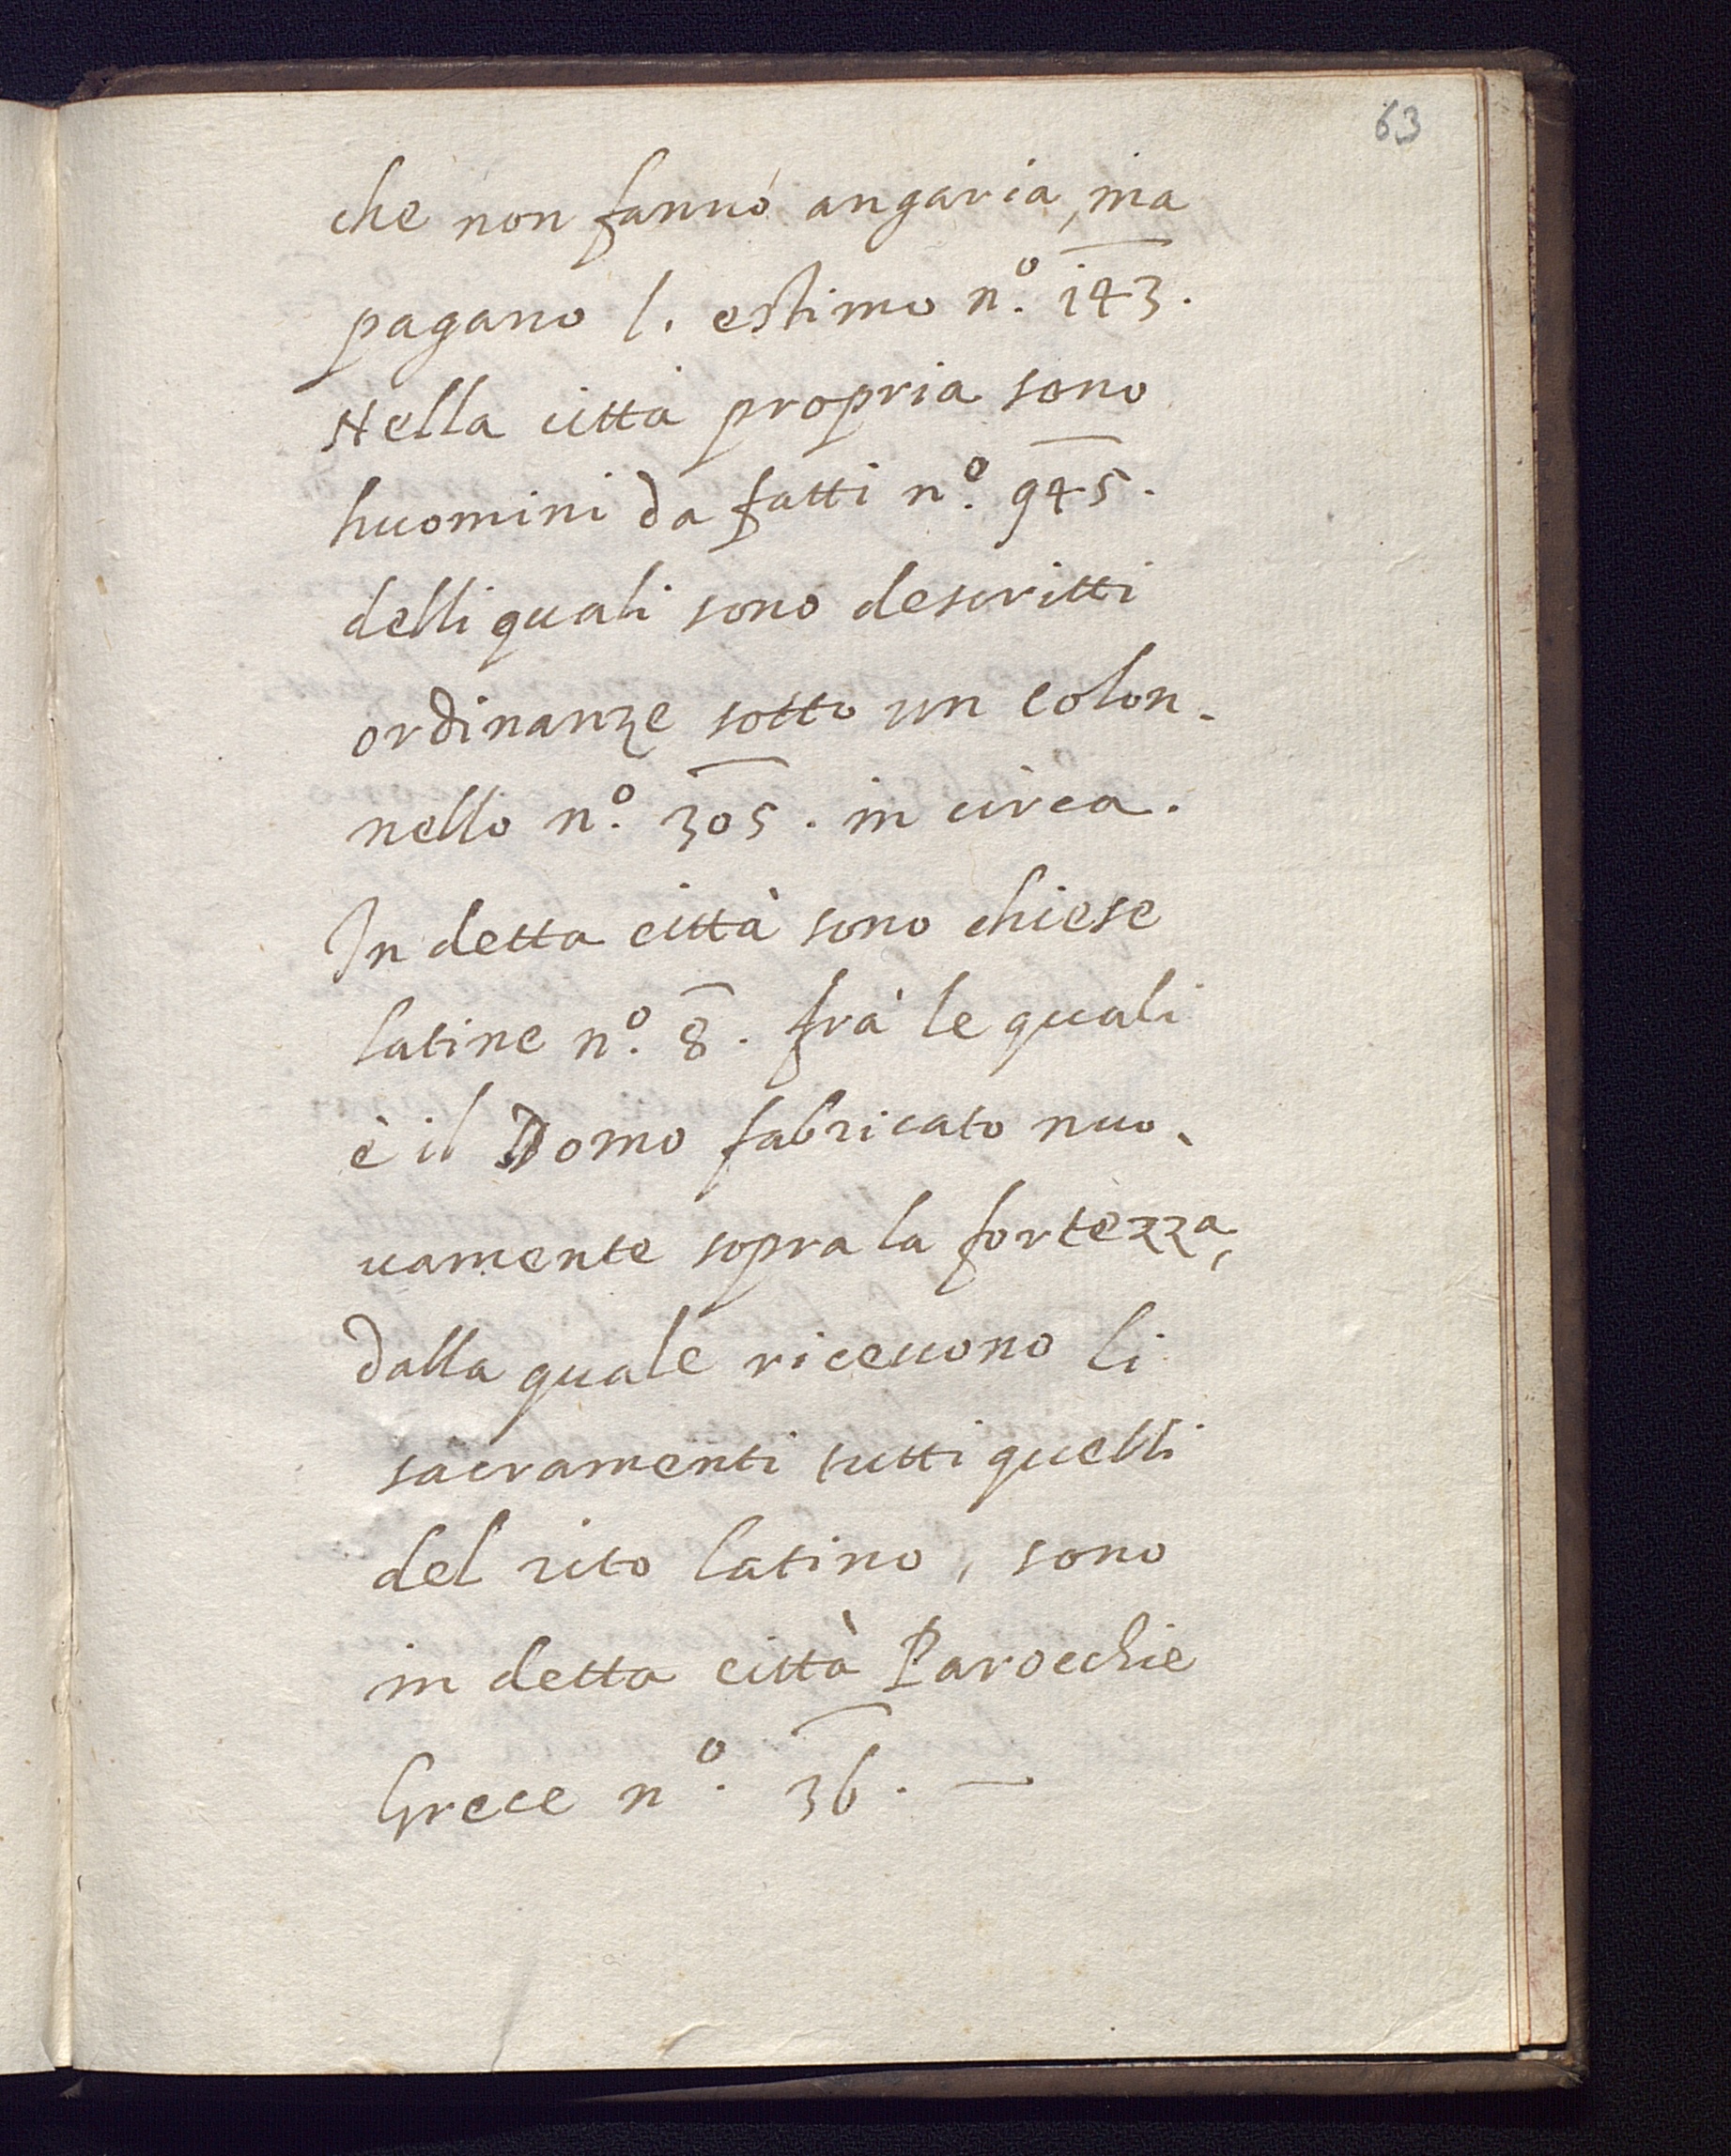 63
che non fanno angaria, ma
pagano l. estimo nº. 143.
Nella città propria sono
huomini da fatti nº. 945.
delli quali sono descritti
ordinanze sotto un colon-
nello nº. 305. in circa.
In detta città sono chiese
latine nº. 8. frà le quali
è il Domo fabricato nuo-
uamente sopra la fortezza,
dalla quale riceuono li
sacramenti tutti quelli
del rito latino, sono
in detta città Parocchie
Grece nº. 36. —